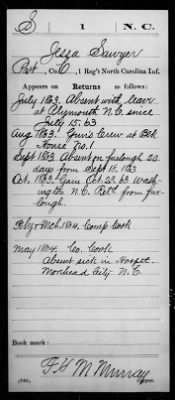 S | 1 | N. C.
Jessa Sawyer
Pvt, Co. C, 1 Reg't North Carolina Inf.
Appears on Returns as follows:
July 1863. Absent with leave
at Plymouth N.C. since
July 15.63
Aug 1863. Gun's Crew at Blk
House No. 1
Sept 1863 Absent on furlough 20
days from Sept 15, 1863
Oct. 1863. Gain Oct. 23, 63 Wash-
ington N.C. Retd from fur-
lough.
Feby & Mch. 1864. Comp. Cook
May 1864. Co. Cook
Absent sick in Hospt.
Morehead City N.C.
Book mark:
M. Murray
(546) Copyist.